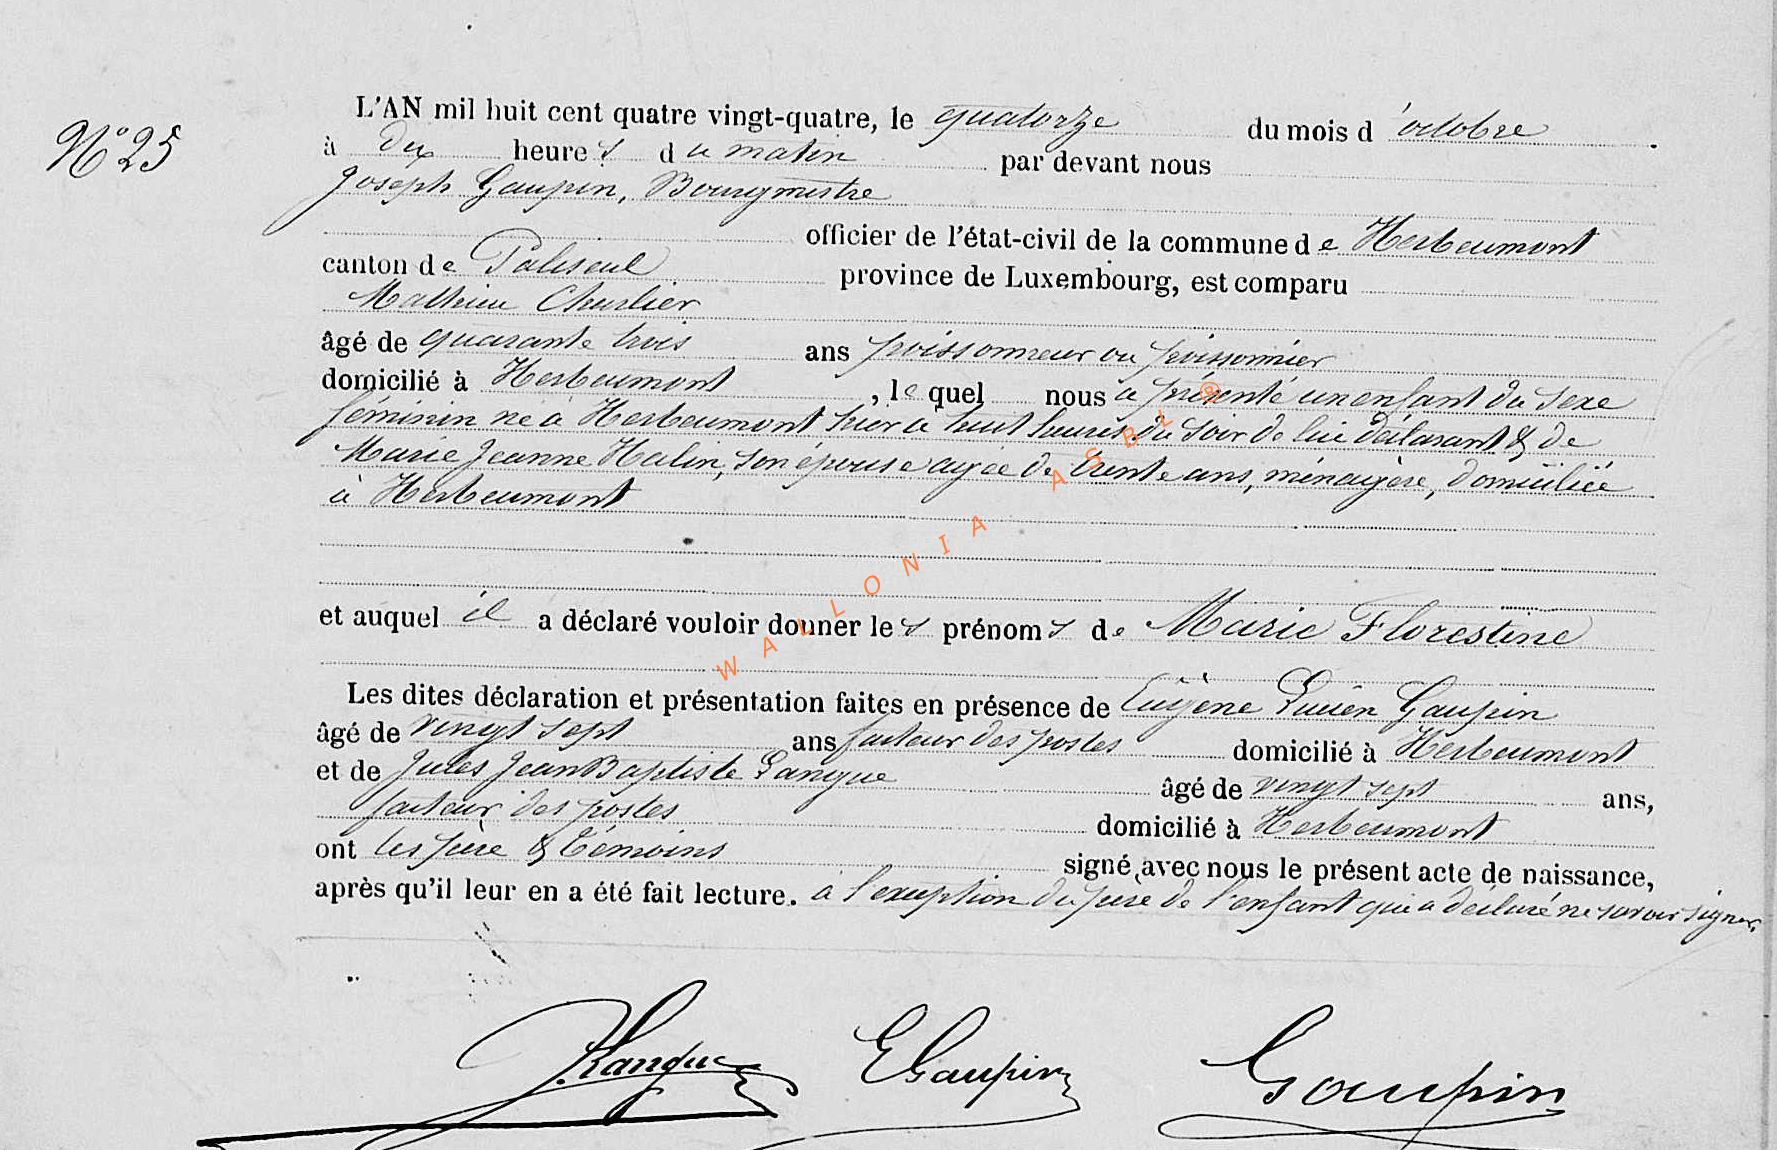 N° 25
L'AN mil huit cent quatre vingt-quatre, le quatorze du mois d'octobre.
à dix heures du matin par devant nous
Joseph Gaupin, Bourgmestre
officier de l'état-civil de la commune de Herbeumont
canton de Paliseul province de Luxembourg, est comparu
Mathieu Charlier
âgé de quarante trois ans poissonneur ou poissonnier
domicilié à Herbeumont, lequel nous a présenté un enfant du sexe
féminin né à Herbeumont hier à huit heures du soir de lui déclarant & de
Marie Jeanne Halin, son épouse agée de trente ans, ménagère, domiciliée
à Herbeumont
et auquel il a déclaré vouloir donner les prénoms de Marie Florestine
Les dites déclaration et présentation faites en présence de Eugène Lucien Gaupin
âgé de vingt sept ans facteur des postes domicilié à Herbeumont
et de Jules Jean Baptiste Langue âgé de vingt sept ans,
facteur des postes domicilié à Herbeumont
ont les père & témoins signé avec nous le présent acte de naissance,
après qu'il leur en a été fait lecture. à l'exception du père de l'enfant qui a déclaré ne savoir signer.
J. Langue EGaupin Gaupin
WALLONIA ASBL ®